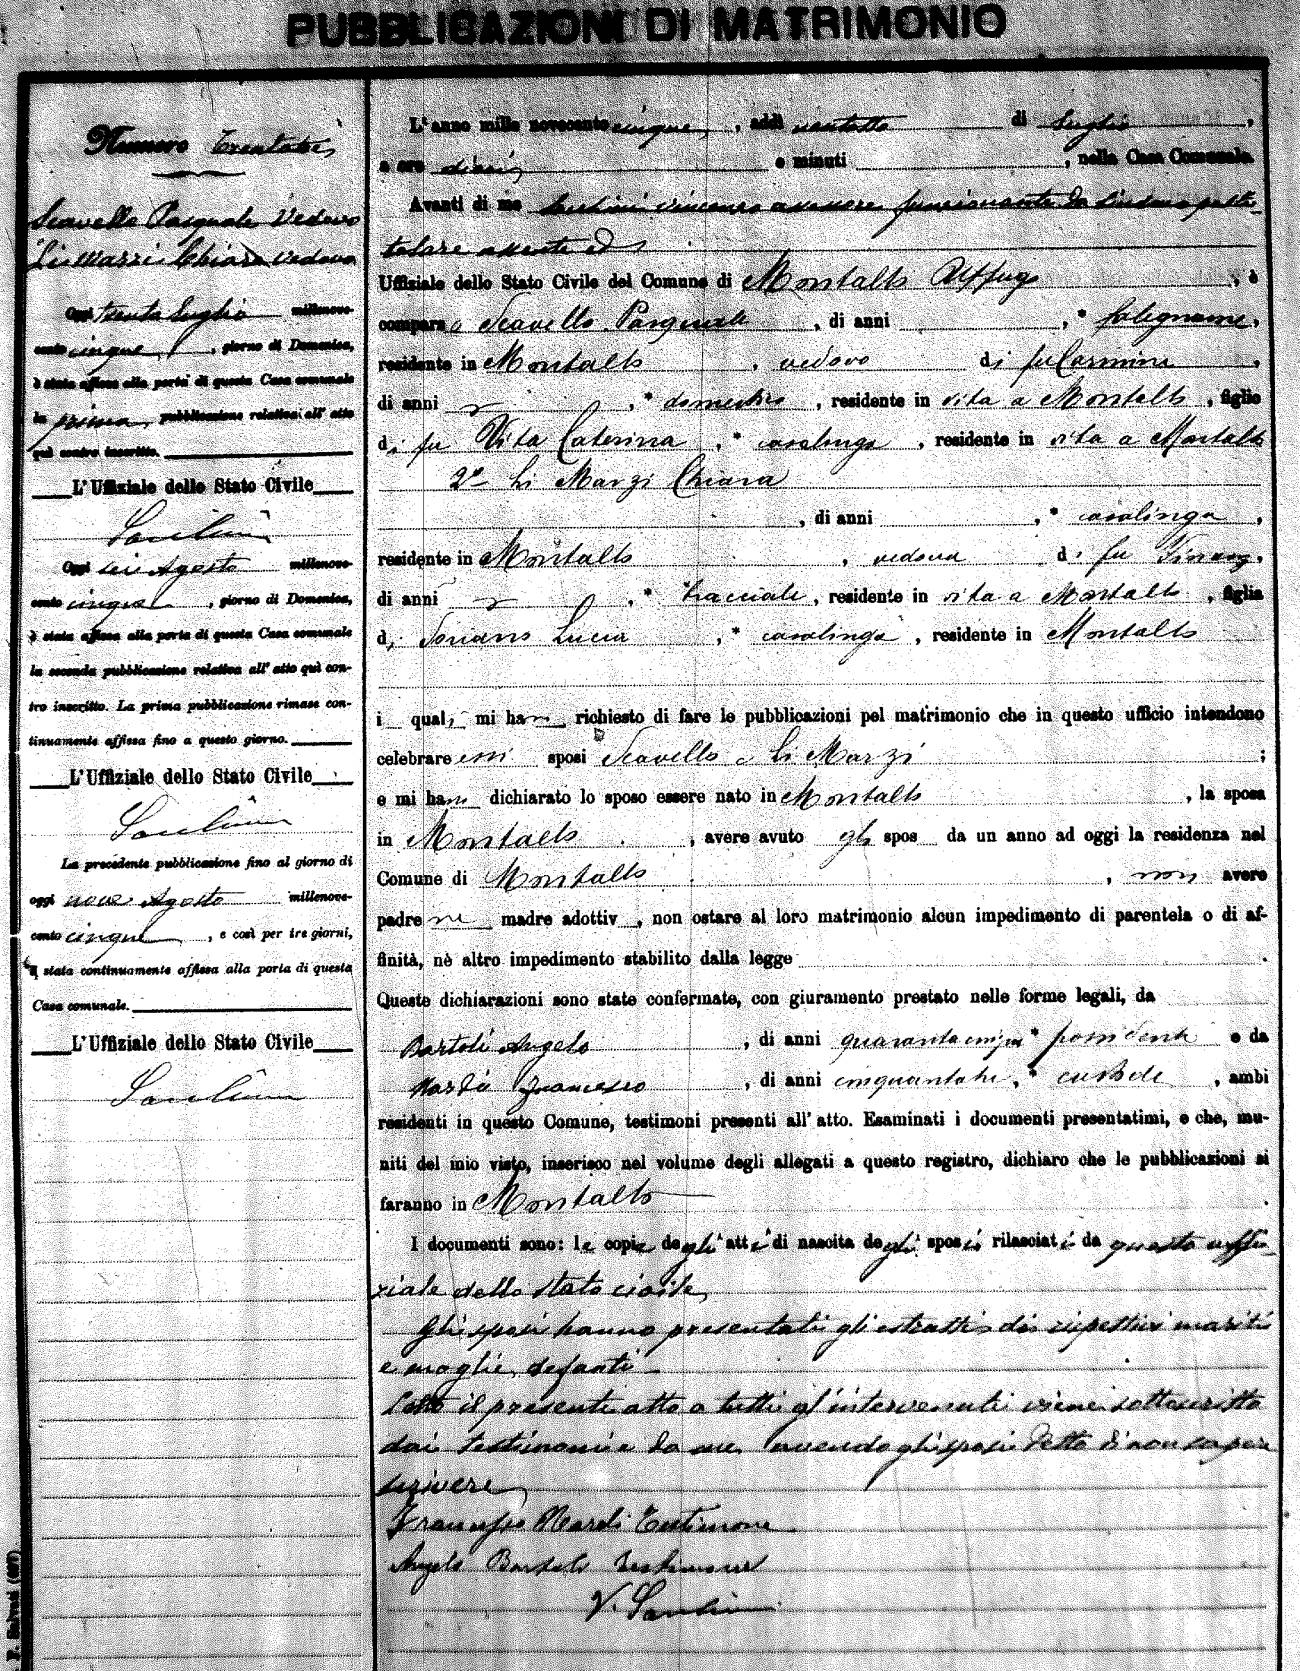 PUBBLICAZIONI DI MATRIMONIO
Numero
Scavello Pasquale Vedovo
Li Marzi Chiara Vedova
Oggi trenta Luglio millenove-
cento cinque, giorno di Domenica,
è stata affissa alla porta di questa Casa comunale
la prima pubblicazione relativa all' atto
quì contro inscritto.
L'Uffiziale dello Stato Civile
Oggi sei Agosto millenove-
cento cinque, giorno di Domenica,
è stata affissa alla porta di questa Casa comunale
la seconda pubblicazione relativa all' atto quì con-
tro inscritto. La prima pubblicazione rimase con-
tinuamente affissa fino a questo giorno.
L'Uffiziale dello Stato Civile
La precedente pubblicazione fino al giorno di
oggi nove Agosto millenove-
cento cinque, e così per tre giorni,
è stata continuamente affissa alla porta di questa
Casa comunale.
L'Uffiziale dello Stato Civile
L'anno mille novecento cinque, addì ventotto di Luglio,
a ore dieci e minuti , nella Casa Comunale.
Avanti di me Vincenzo assessore funzionante da Sindaco pel ti-
tolare assente ed
Uffiziale dello Stato Civile del Comune di Montalto Uffugo, è
comparso Scavello Pasquale, di anni , * falegname,
residente in Montalto, vedovo di fu Carmine,
di anni , * domestico, residente in vita a Montalto, figlio
di fu Vita Caterina, * casalinga, residente in vita a Montalto
2° Li Marzi Chiara
, di anni , * casalinga,
residente in Montalto, vedova di fu
di anni , * bracciale, residente in vita a Montalto, figlia
di Soriano Lucia, * casalinga, residente in Montalto
i quali mi hanno richiesto di fare le pubblicazioni pel matrimonio che in questo ufficio intendono
celebrare essi sposi Scavello e Li Marzi ;
e mi hanno dichiarato lo sposo essere nato in Montalto, la sposa
in Montalto, avere avuto gli spos da un anno ad oggi la residenza nel
Comune di Montalto, non avere
padre ne madre adottiv , non ostare al loro matrimonio alcun impedimento di parentela o di af-
finità, nè altro impedimento stabilito dalla legge .
Queste dichiarazioni sono state confermate, con giuramento prestato nelle forme legali, da
Bartoli Angelo, di anni quarantacinque * possidente e da
Nardi Francesco, di anni cinquantatre, * custode, ambi
residenti in questo Comune, testimoni presenti all' atto. Esaminati i documenti presentatimi, e che, mu-
niti del mio visto, inserisco nel volume degli allegati a questo registro, dichiaro che le pubblicazioni si
faranno in Montalto
I documenti sono: le copie degli atti di nascita degli sposi rilasciati da questo uffi-
ziale dello stato civile,
Gli sposi hanno presentati gli estratti dei rispettivi mariti
e moglie defunti
Letto il presente atto a tutti gl'intervenuti viene sottoscritto
dai testimoni e da me, avendo gli sposi detto di non saper
scrivere
Francesco Nardi Testimone
Angelo Bartoli testimone